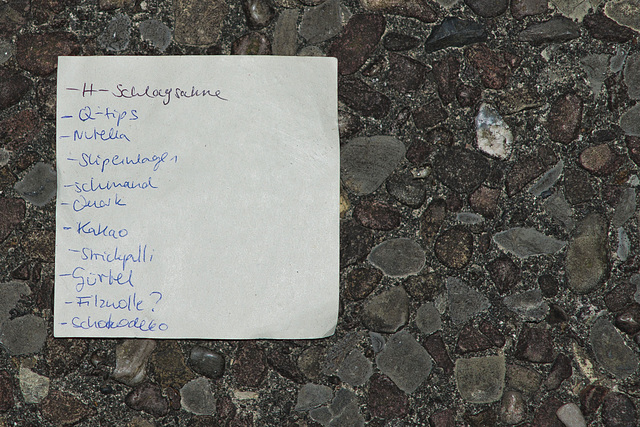 - H - Schlagsahne
- Q-tips
- Nutella
- Slipeinlagen
- schmand
- Quark
- Kakao
- Strickpulli
- Gürtel
- Filzwolle?
- Schokodeko